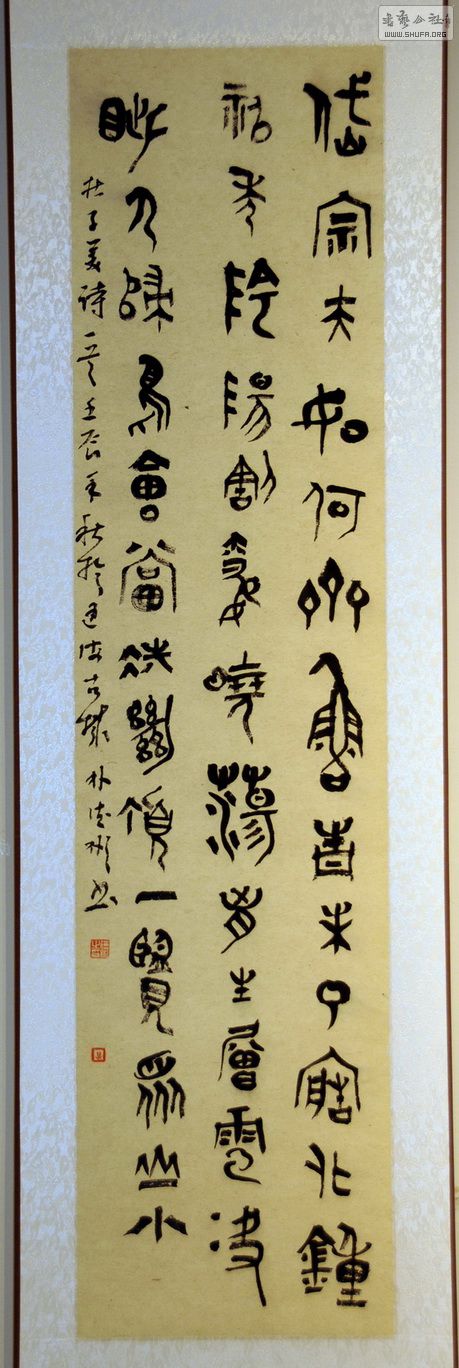 岱宗夫如何齊魯青未了造化鍾
神秀陰陽割昏曉蕩胸生層雲決
眥入歸鳥會當凌絕頂一覽眾山小
杜子美詩一首壬辰年秋於海古城書
書藝公社
WWW.SHUFA.ORG